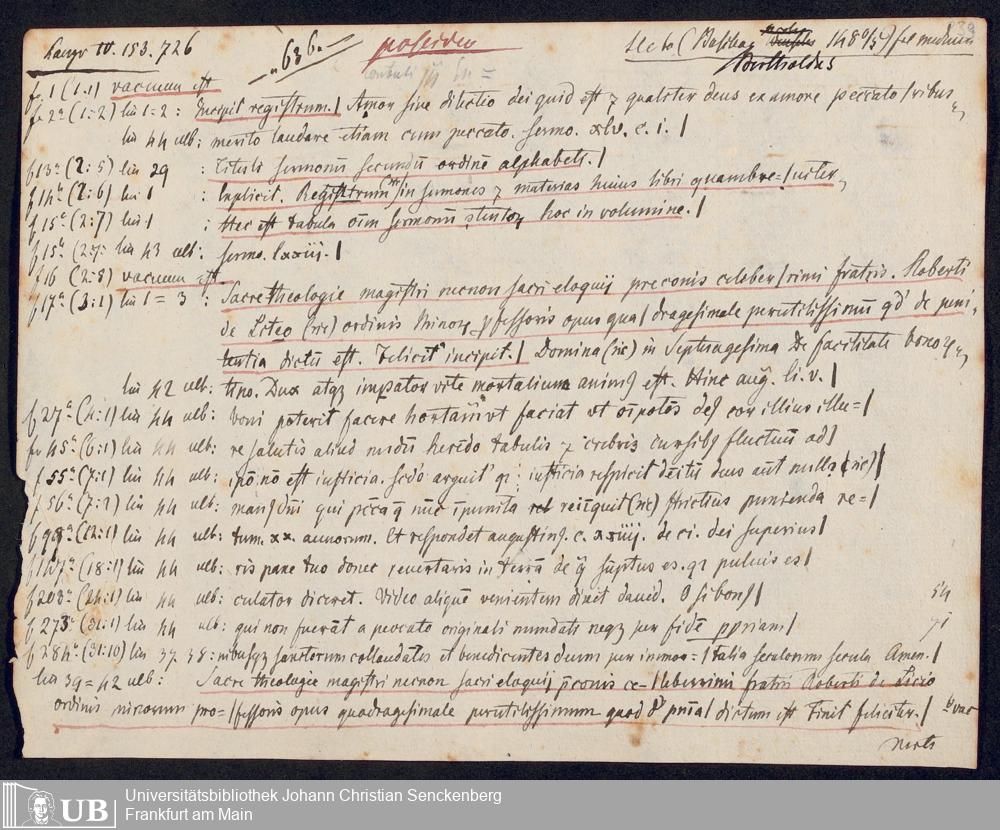 Panzer IV. 153. 726 636. poseidon Licio (Basileae 1480/5) sel medium
Bertholdus
f 1 (1:1) vacuum est
fr 2a (1:2) lin 1-2: Incipit registrum. | Amor sine dilectio dei quid est z qualiter deus ex amore peccato / ribus
lin 44 ulb: merito laudare etiam cum peccato. sermo. xlv. c. i. |
f 13a (2:5) lin 29 : Tituli sermonũ secundũ ordinẽ alphabeti. |
f 14b (2:6) lin 1 : Explicit. Registrum / in sermones z materias huius libri quambre= / uiter
f 15a (2:7) lin 1 : Hec est tabula oĩm sermonũ ptentoꝝ hoc in volumine. |
f 15b (2:7: lin 43 ulb: sermo. lxxiij. |
f 16 (2:8) vacuum est.
f 17a (3:1) lin 1 = 3 : Sacre theologie magistri necnon sacri eloquij preconis celober / rimi fratris. Roberti
de Liteo (sic) ordinis Minoꝝ pfessoris opus qua / dragesimale perutilissimũ qd' de peni
tentia dictũ est. Feliciť incipit. | Domina (sic) in Septuagesima De facilitate bonoꝝ
lin 42 ulb: tino. Dux atqꝫ impator vite mortalium animꝰ est. Hinc aug. li. v. |
f 27a (4:1) lin 44 ulb: boni poterit facere hortamĩ vt faciat vt oĩpotẽs deꝰ cor illius illu= |
fr 45a (6:1) lin 44 ulb: re salutis aliud mediũ herẽdo tabulis z crebris cursibꝫ fluctuũ ad |
f 55a (7:1) lin 44 ulb: ipõ nõ est iusticia. Scdo arguit qꝛ iusticia respicit debitũ deus aũt nullo (sic) |
f 56a (7:2) lin 44 ulb: manꝰ dñi qui pcca q nũc ĩpunita reliquit (sic) strictius punienda re= |
f 98a (12:1) lin 44 ulb: tum. xx. annorum. Et respondet augustinꝰ. c. xxiiij. de ci. dei superius |
f 147a (18:1) lin 44 ulb: ris pane tuo donec reuertaris in terrã de q sũptus es. qꝛ puluis es |
f 203a (24:1) lin 44 ulb: culator diceret. Video aliquẽ venientem dixit dauid. Si bonꝰ | 54
f 273a (31:1) lin 44 ulb: qui non fuerãt a peccato originali mundati neqꝫ per fidẽ ppriam | 71
f 284a (31:10) lin 37. 38: nibusqꝫ sanctorum collaudãtes et benedicentes deum per immor= / talia seculorum secula Amen. |
lin 39 = 42 ulb: Sacre theologie magistri necnon sacri eloquij pconis ce- / leberrimi fratris Roberti de Licio
ordinis minorum pro= / fessoris opus quadragesimale perutilissimum quod d' pnĩa / dictum est Finit feliciter. | b vac
UB Universitätsbibliothek Johann Christian Senckenberg
Frankfurt am Main